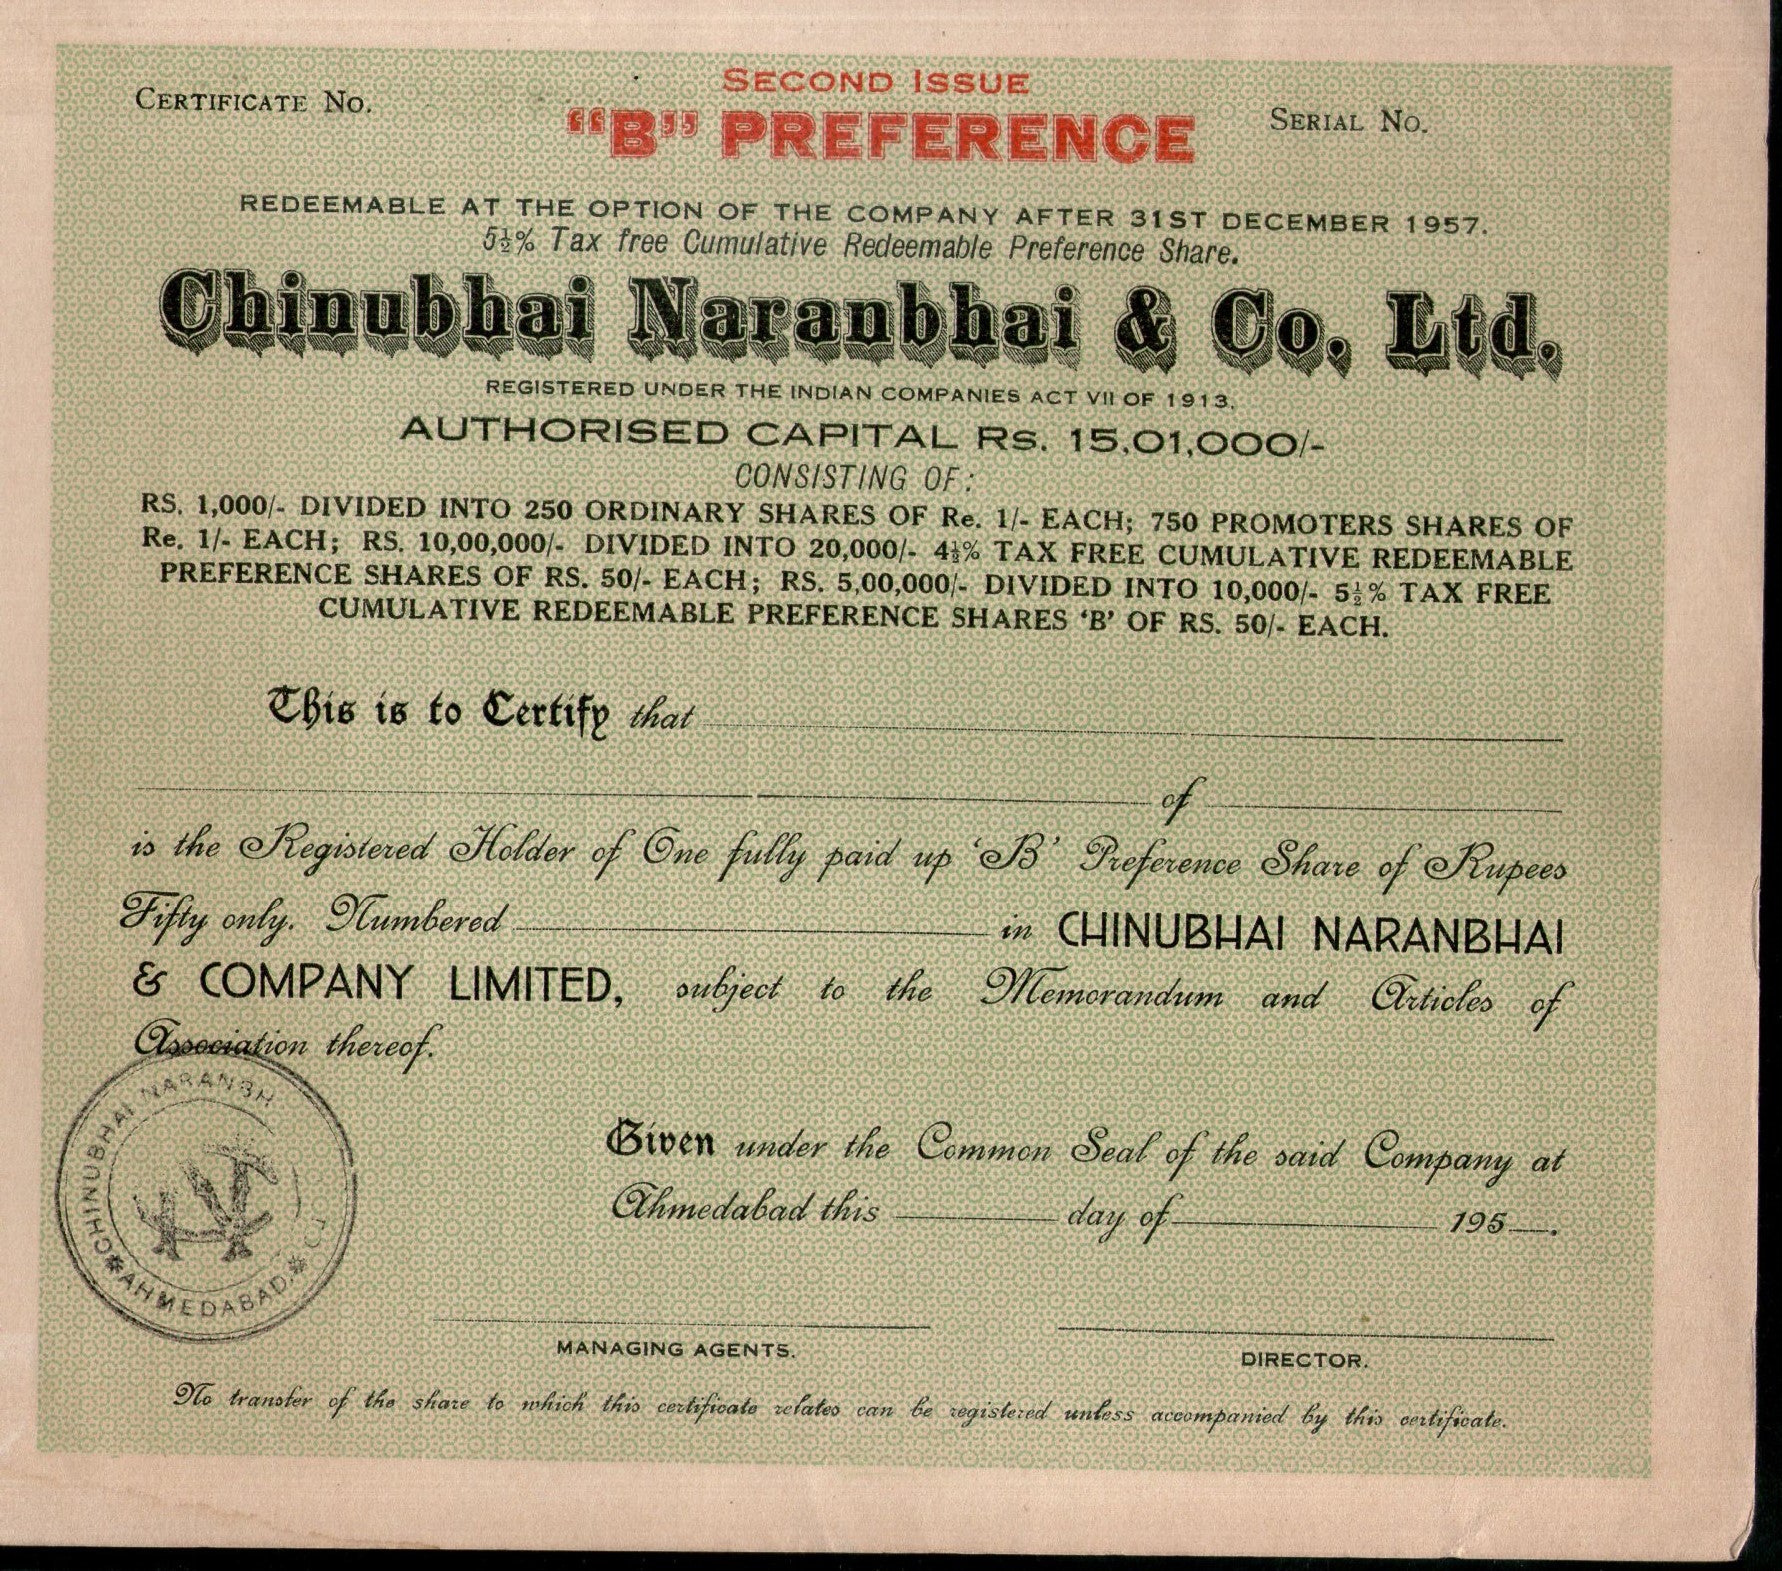 SECOND ISSUE
CERTIFICATE NO.
"B" PREFERENCE
SERIAL NO.
REDEEMABLE AT THE OPTION OF THE COMPANY AFTER 31ST DECEMBER 1957.
5½% Tax free Cumulative Redeemable Preference Share.
Chinubhai Naranbhai & Co. Ltd.
REGISTERED UNDER THE INDIAN COMPANIES ACT VII OF 1913.
AUTHORISED CAPITAL RS. 15,01,000/-
CONSISTING OF:
RS. 1,000/- DIVIDED INTO 250 ORDINARY SHARES OF Re. 1/- EACH; 750 PROMOTERS SHARES OF
Re. 1/- EACH; RS. 10,00,000/- DIVIDED INTO 20,000/- 4½% TAX FREE CUMULATIVE REDEEMABLE
PREFERENCE SHARES OF RS. 50/- EACH; RS. 5,00,000/- DIVIDED INTO 10,000/- 5½% TAX FREE
CUMULATIVE REDEEMABLE PREFERENCE SHARES 'B' OF RS. 50/- EACH.
This is to Certify that
of
is the Registered Holder of One fully paid up 'B' Preference Share of Rupees
Fifty only. Numbered in CHINUBHAI NARANBHAI
& COMPANY LIMITED, subject to the Memorandum and Articles of
Association thereof.
CHINUBHAI NARANBH
AHMEDABAD.
Given under the Common Seal of the said Company at
Ahmedabad this day of 195 .
MANAGING AGENTS.
DIRECTOR.
No transfer of the share to which this certificate relates can be registered unless accompanied by this certificate.